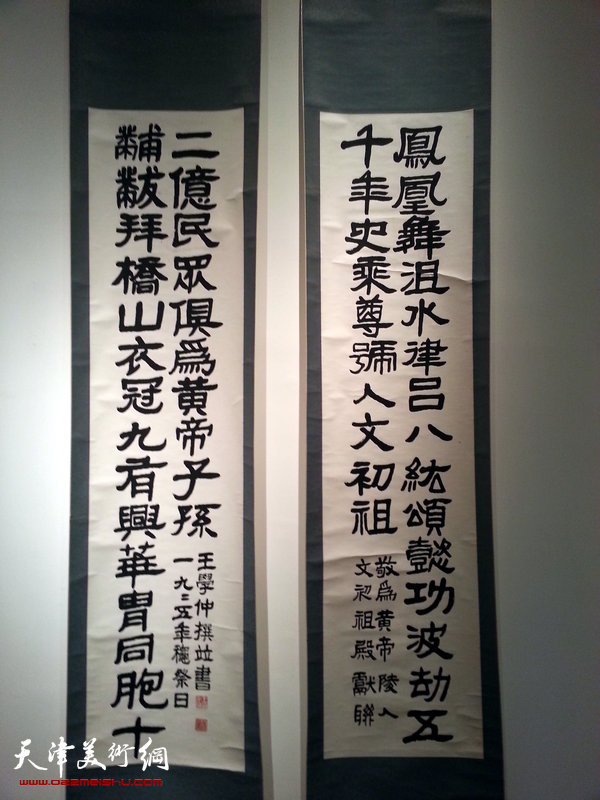 鳳凰舞沮水律呂八紘頌懿功波劫五
千年史乘尊號人文初祖
敬爲黄帝陵人
文初祖殿獻聯
黼黻拜橋山衣冠九有興華胄同胞十
二億民眾俱爲黄帝子孫
王學仲撰竝書
一九五年祭日
天津美術網
www.022meishu.com